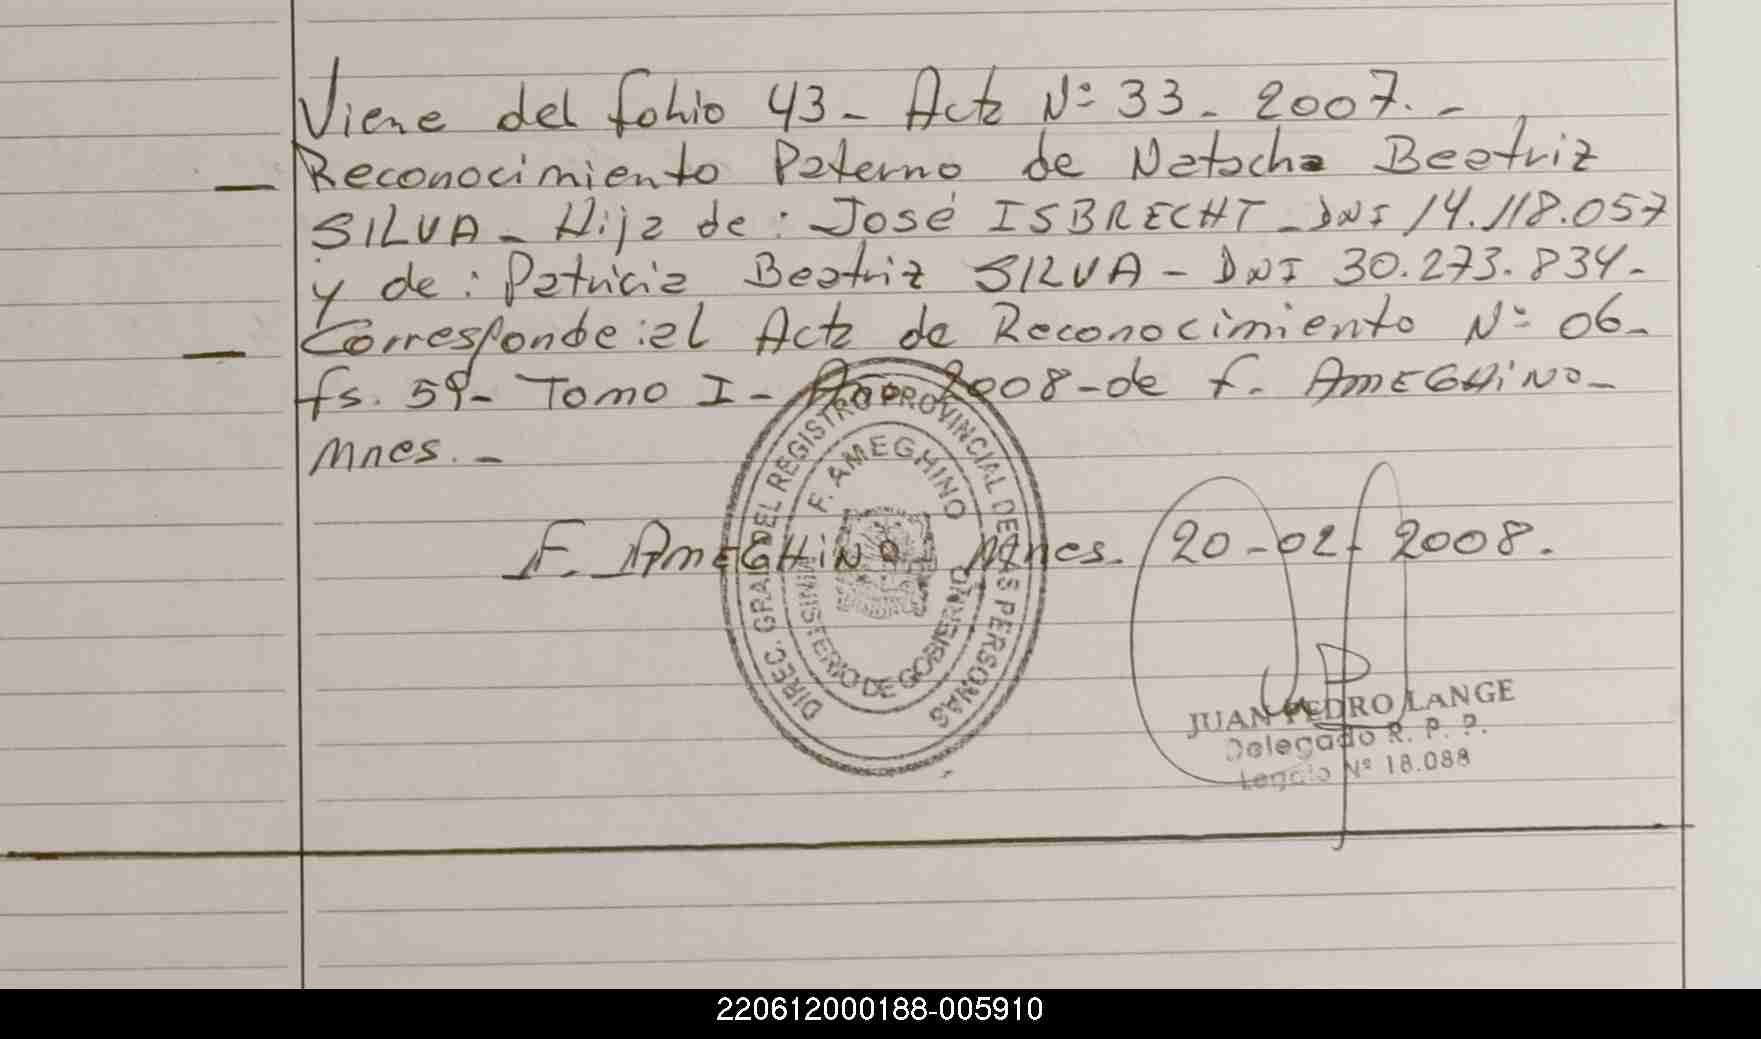 Viene del folio 43- Acta Nº 33- 2007.-
Reconocimiento Paterno de Natacha Beatriz
SILVA- Hija de: José ISBRECHT-DNI 14.118.057
y de: Patricia Beatriz SILVA- DNI 30.273.834-
Corresponde:al Acta de Reconocimiento Nº 06-
fs. 59- Tomo I- Año 2008-de F. AMEGHINO-
Mnes.-
F. AMEGHINO Mnes. 20-02-2008.
DIREC. GRAL DEL REGISTRO PROVINCIAL DE LAS PERSONAS
F. AMEGHINO
MINISTERIO DE GOBIERNO
JUAN PEDRO LANGE
Delegado R. P. P.
Legajo Nº 18.088
220612000188-005910